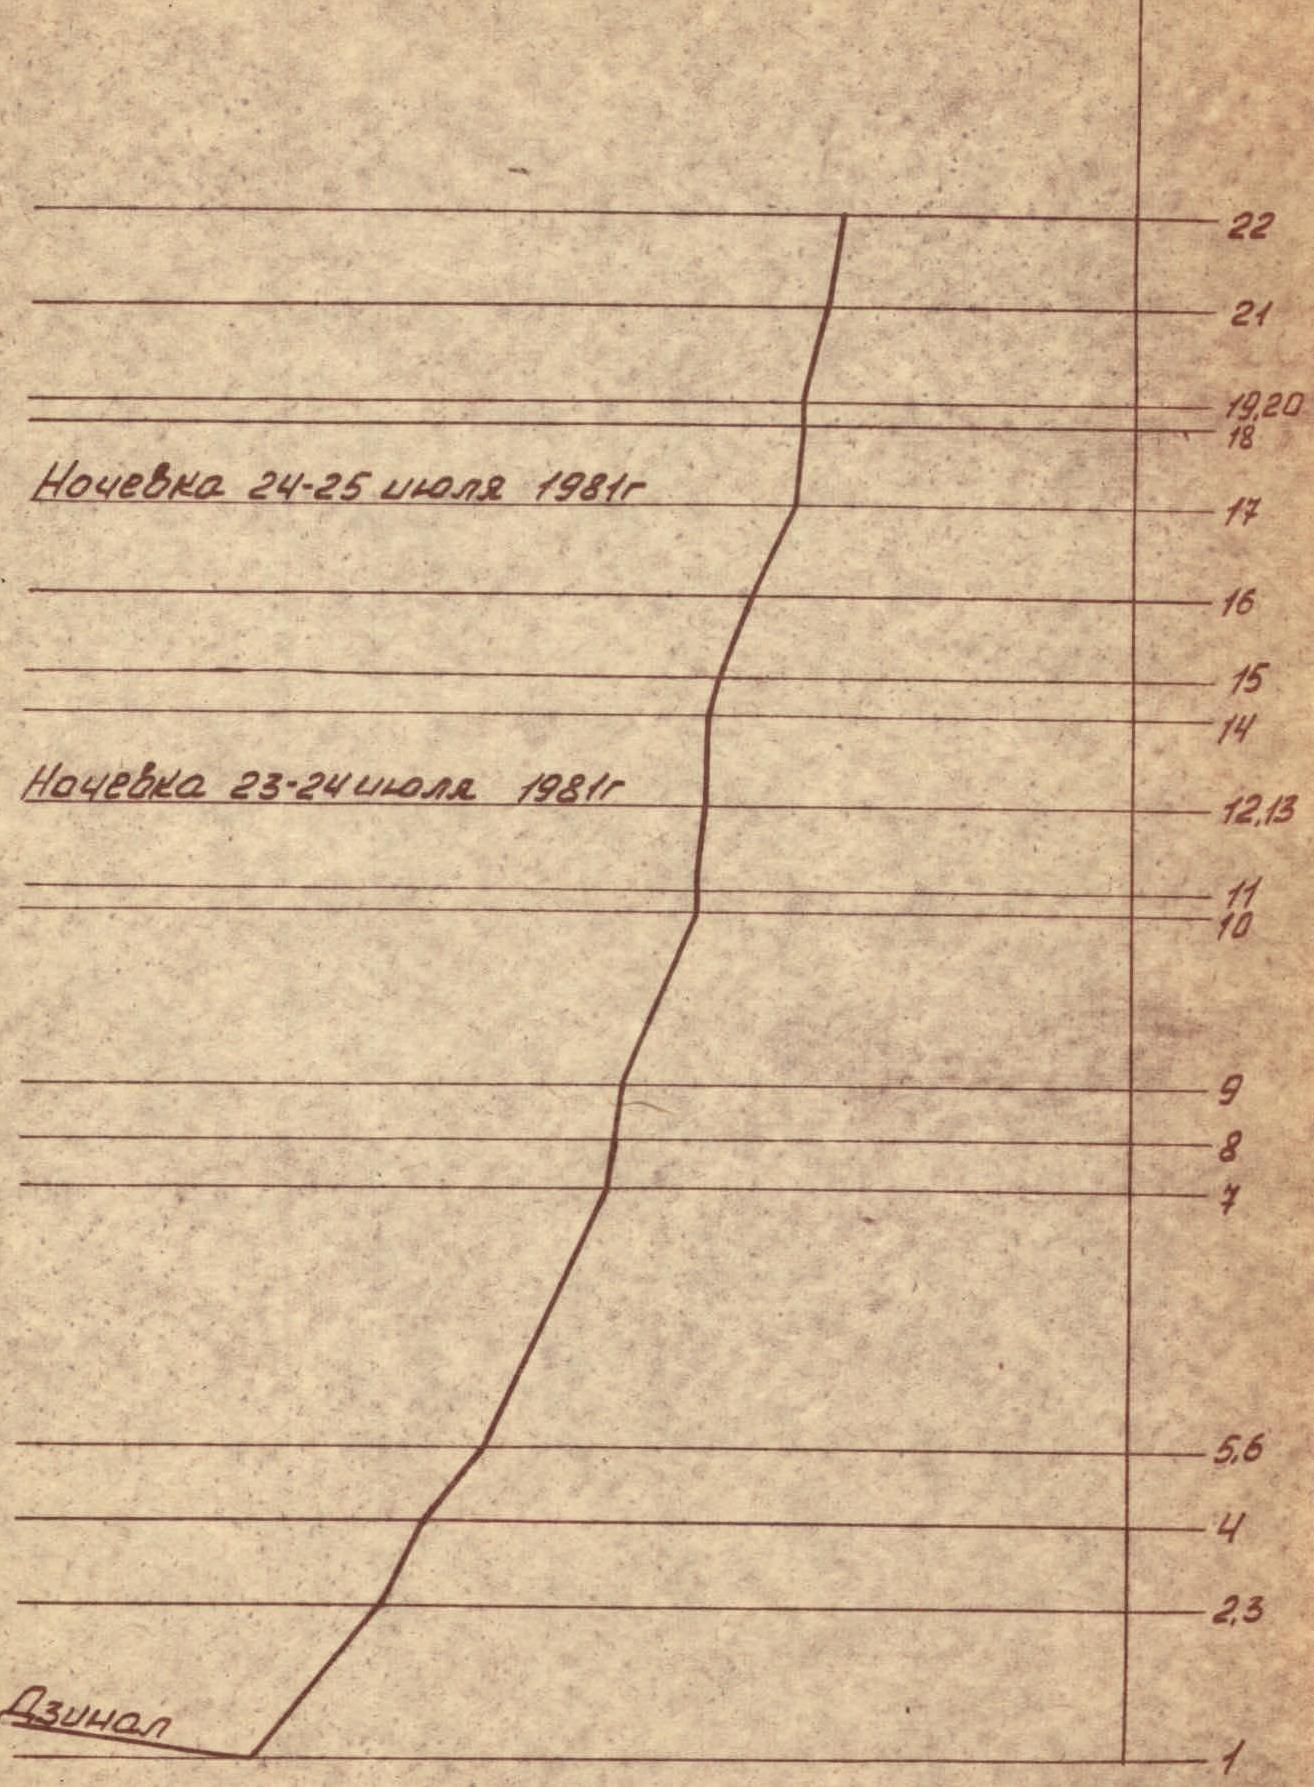 22
21
19,20
18
Ночевка 24-25 июля 1981г
17
16
15
14
Ночевка 23-24 июля 1981г
12,13
11
10
9
8
7
5,6
4
2,3
Дзинал
1